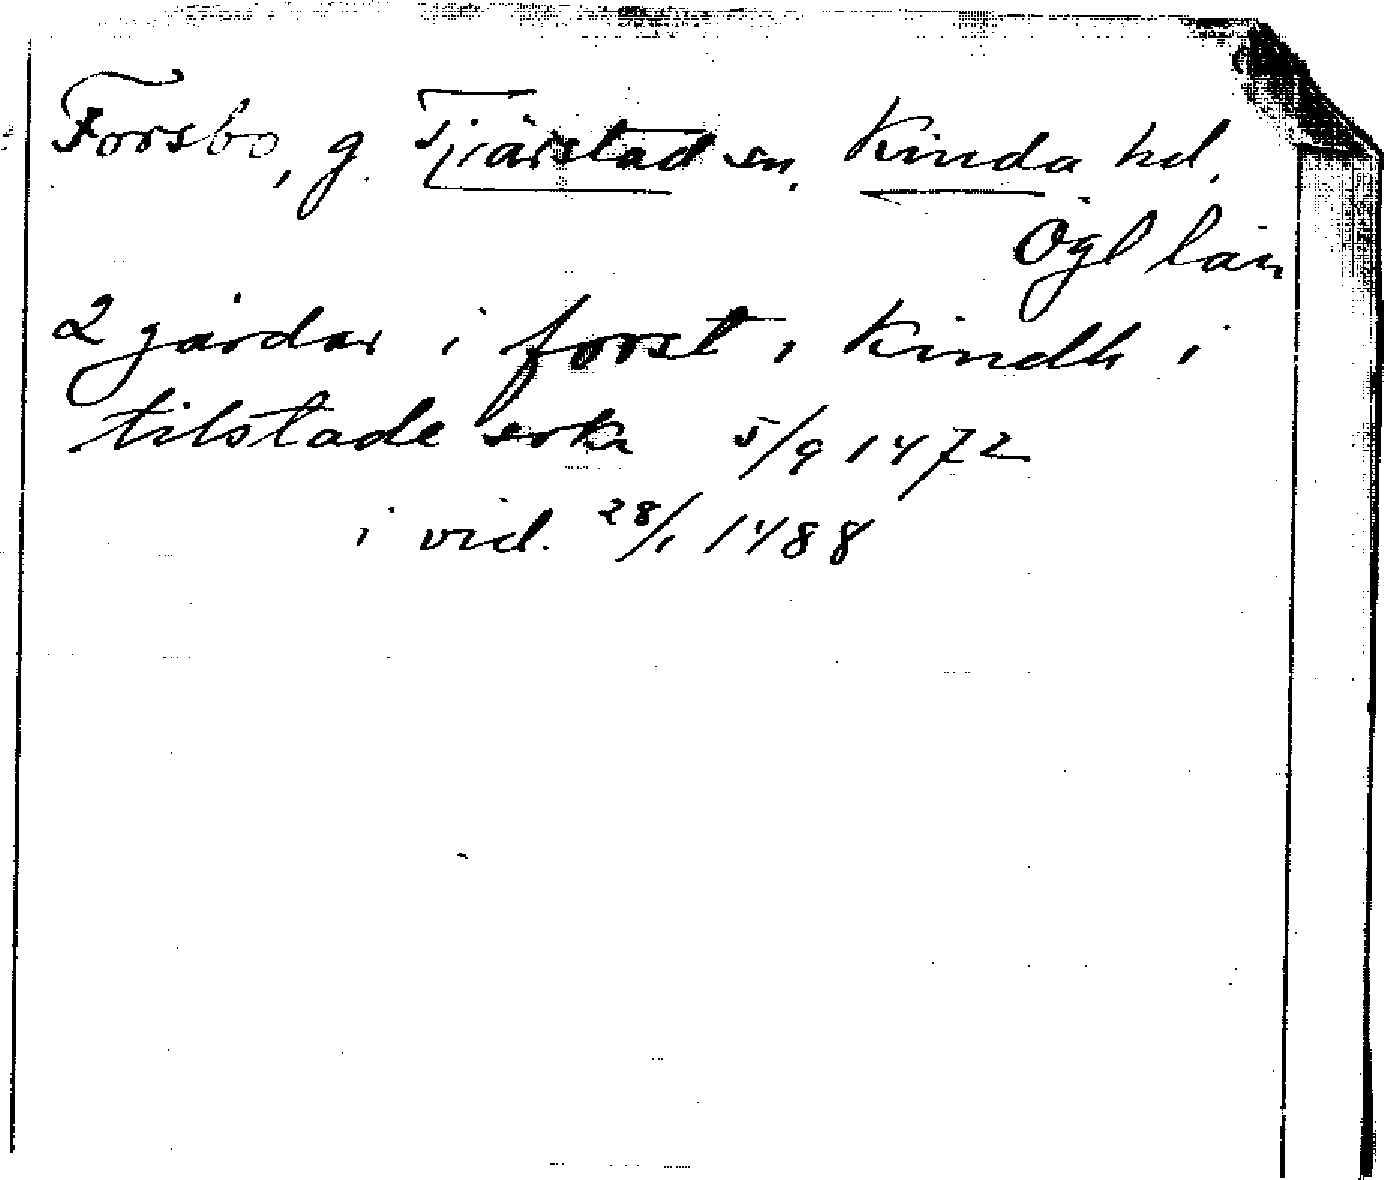 Forsbo, g. Tjärstad sn, Kinda hd,
Ögl län
2 gårdar i forst i Kindh i
tilstade sokn 5/9 1472
i vid. 28/1 1488